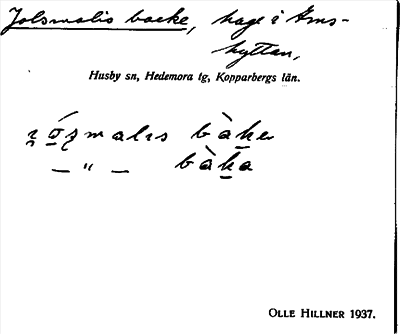 Jolsmalis backe, hage i Ams-
hyttan,
Husby sn, Hedemora tg, Kopparbergs län.
bàka
— " — bàka
OLLE HILLNER 1937.